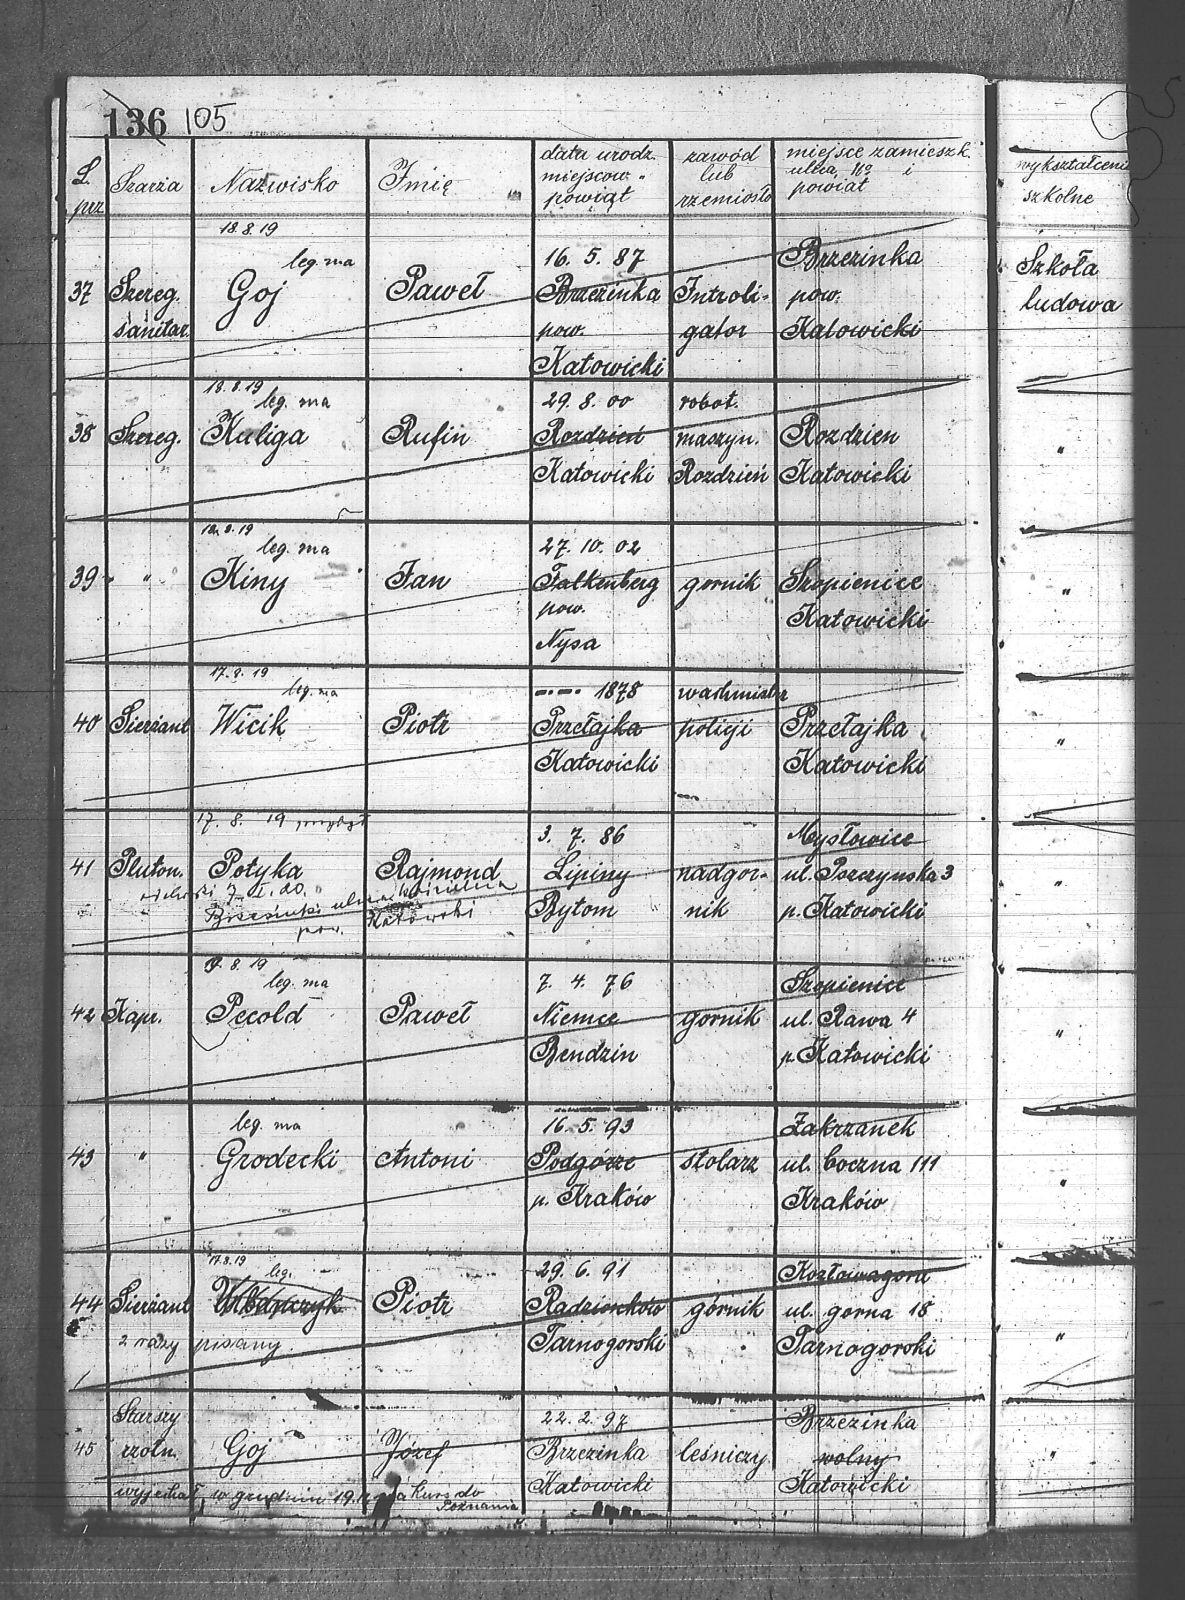 136 105
L. prz
Szarża
Nazwisko
Imię
data urodz.
miejscow.
powiat
zawód
lub
rzemiosło
miejsce zamieszk.
ulica, No i
powiat
wykształcenie
szkolne
18.8.19
leg. ma
37
Szereg.
sanitar.
Goj
Paweł
16. 5. 87
Brzezinka
pow.
Katowicki
Introli-
gator
Brzezinka
pow.
Katowicki
Szkoła
ludowa
18.8.19
leg. ma
38
Szereg.
Kuliga
Rufin
29. 8. 00
Rozdzień
Katowicki
robot.
maszyn.
Rozdzień
Rozdzien
Katowicki
"
18.8.19
leg. ma
39
"
Kiny
Jan
27. 10. 02
Falkenberg
pow.
Nysa
gornik
Szopienice
Katowicki
"
17.9.19
leg. ma
40
Sierżant
Wicik
Piotr
–·–· 1878
Przełajka
Katowicki
wachmister
policji
Przełajka
Katowicki
"
17. 8. 19
41
Pluton.
Potyka
Rajmond
3. 7. 86
Lipiny
Bytom
nadgór-
nik
Mysłowice
ul. Pszczynska 3
p. Katowicki
Brzezinka ulica
pow. Katowski
8. 19
leg. ma
42
Kapr.
Pecold
Paweł
7. 4. 76
Niemce
Bendzin
gornik
Szopienice
ul. Rawa 4
p. Katowicki
"
leg. ma
43
"
Grodecki
Antoni
16. 5. 93
Podgórze
p. Kraków
stolarz
Zakrzanek
ul. boczna 111
Kraków
"
17.8.19
leg.
44
Sierżant
Urbanczyk
Piotr
2 razy pisany.
29. 6. 91
Radzionków
Tarnogorski
górnik
Kozłowagora
ul. gorna 18
Tarnogorski
"
45
Starszy
rzołn.
Goj
Józef
22. 2. 97
Brzezinka
Katowicki
leśniczy
Brzezinka
wolny
Katowicki
"
wyjechał w grudniu 19. na kurs do
Poznania